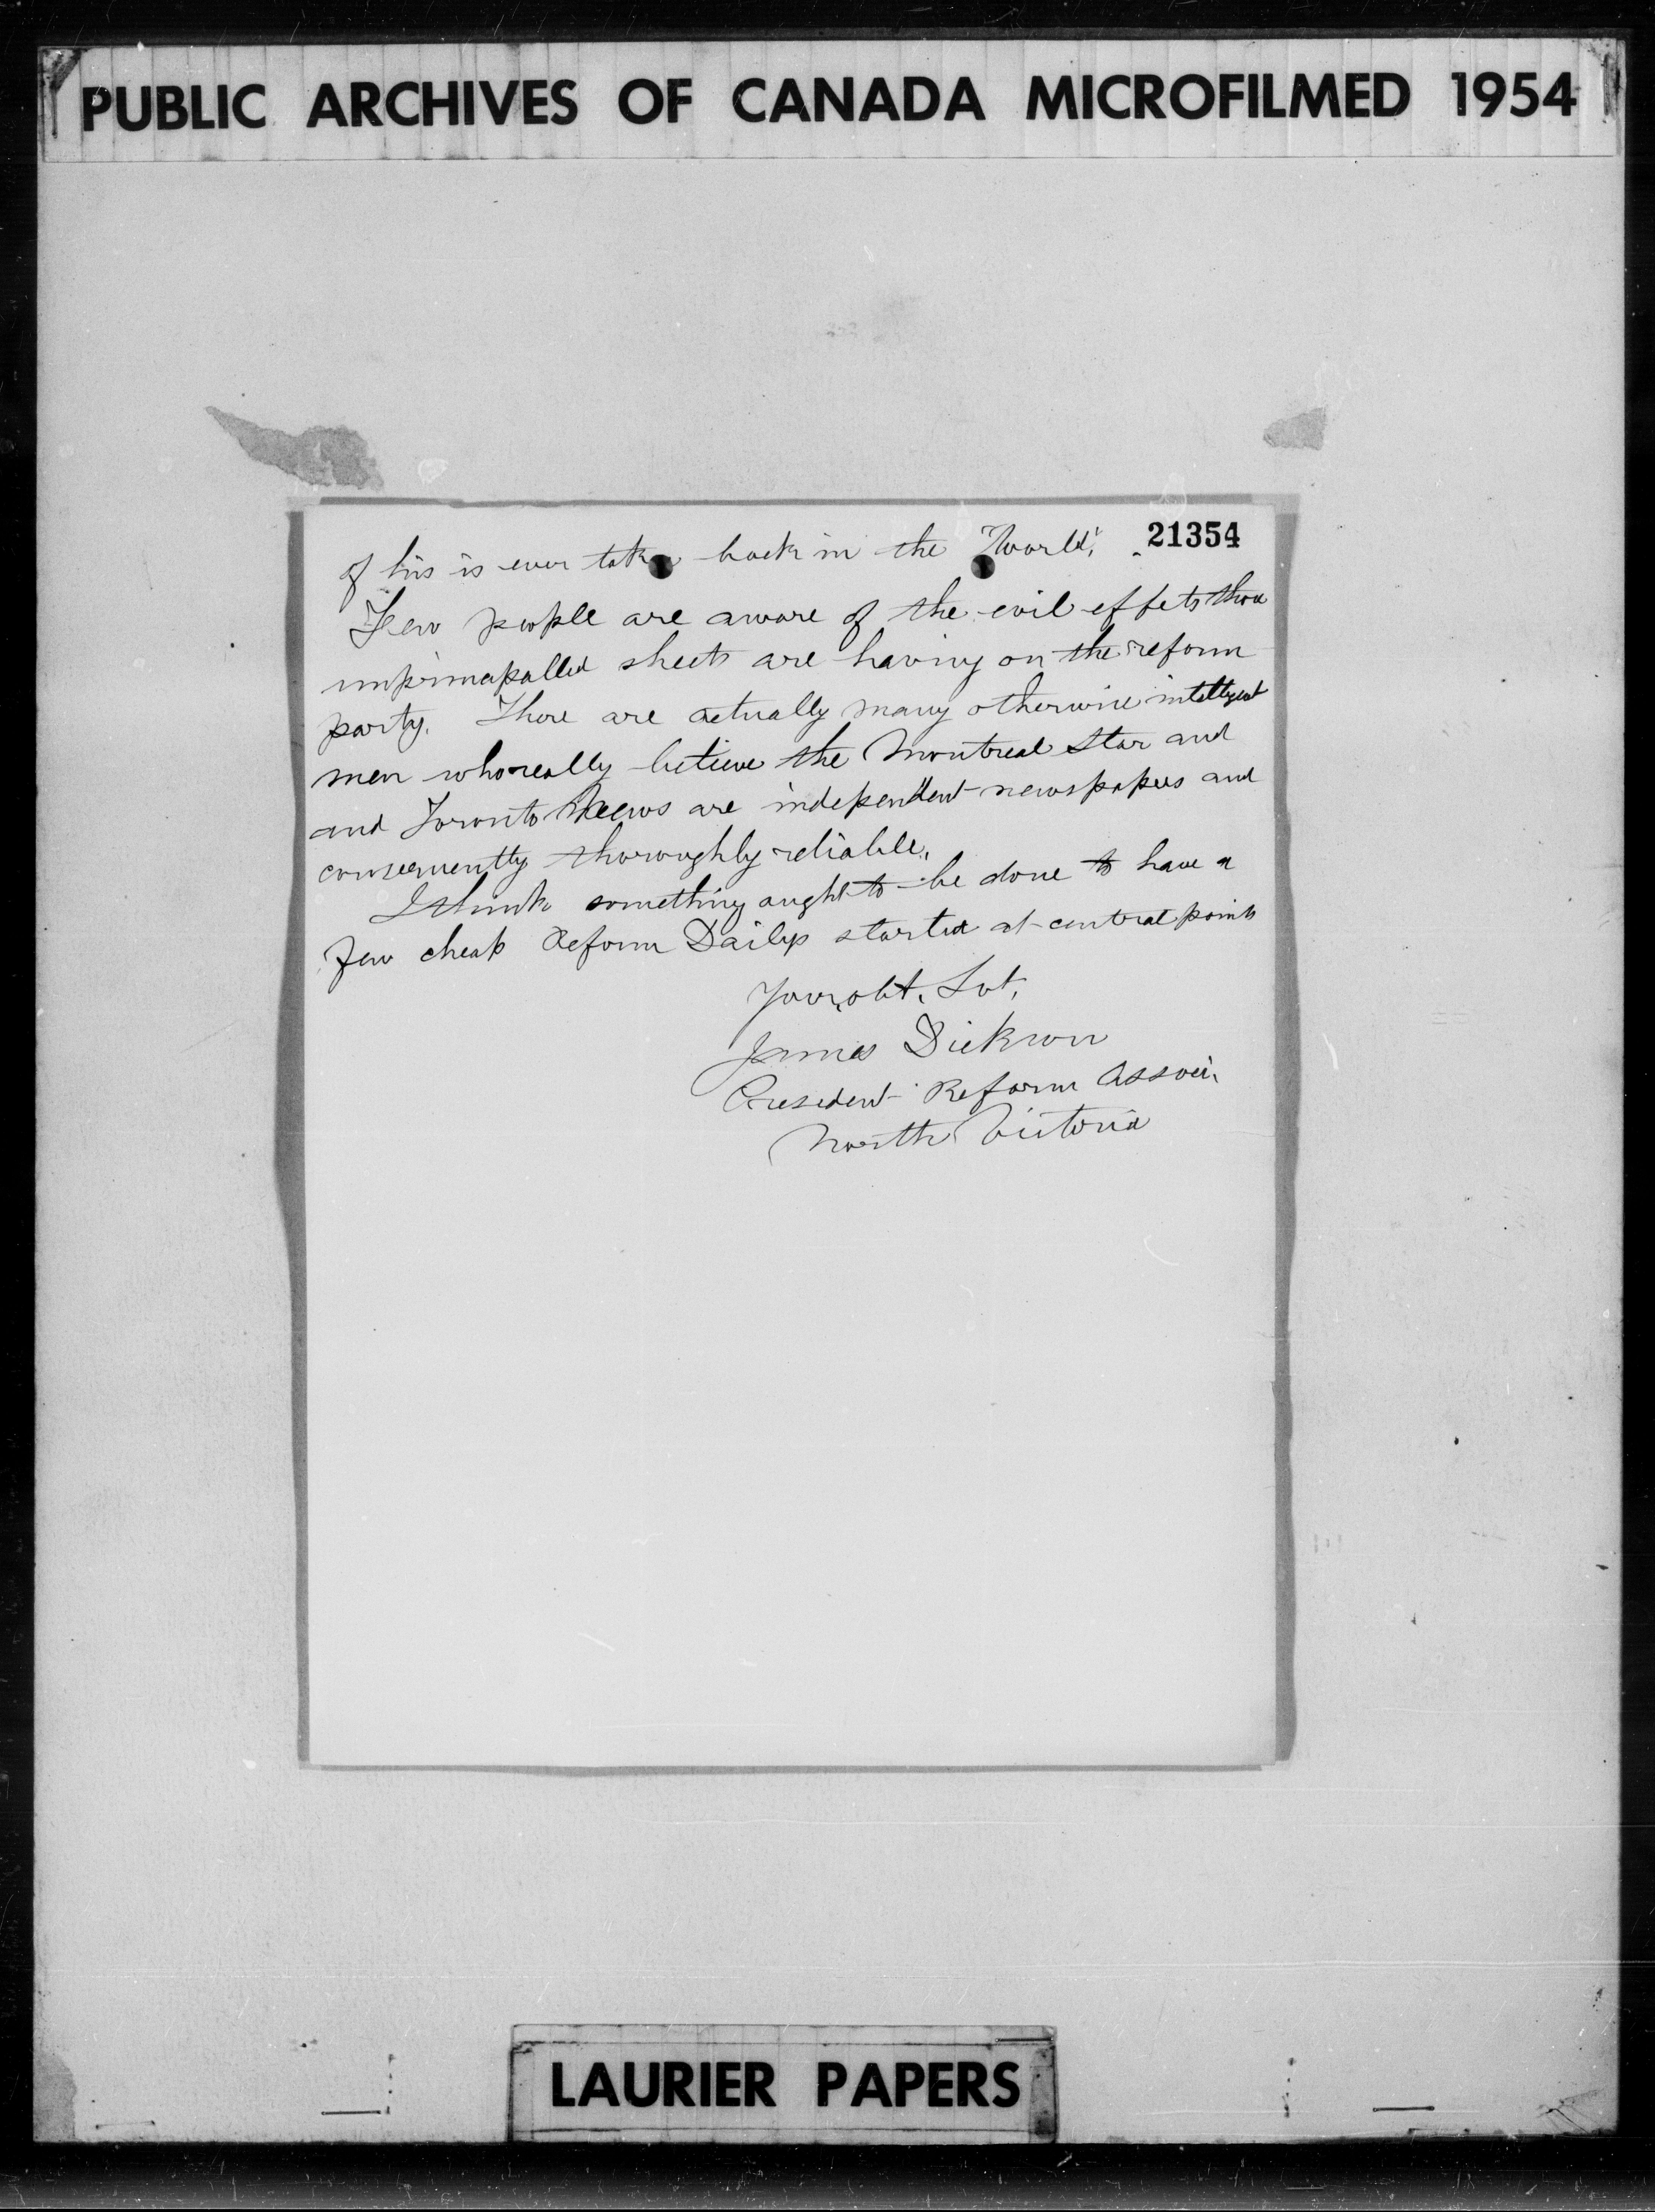 PUBLIC ARCHIVES OF CANADA MICROFILMED 1954
21354
of his is ever taken back in the "World".
Few people are aware of the evil effets those
unprincipalled sheets are having on the reform
party. There are actually many otherwise intelligent
men who really believe the Montreal Star and
and Toronto News are independent newspapers and
consequently thoroughly reliable.
I think something aught to be done to have a
few cheap Reform Dailys started at central points
Your obt. Svt.
James Dickson
President Reform Associ.
North Victoria
LAURIER PAPERS